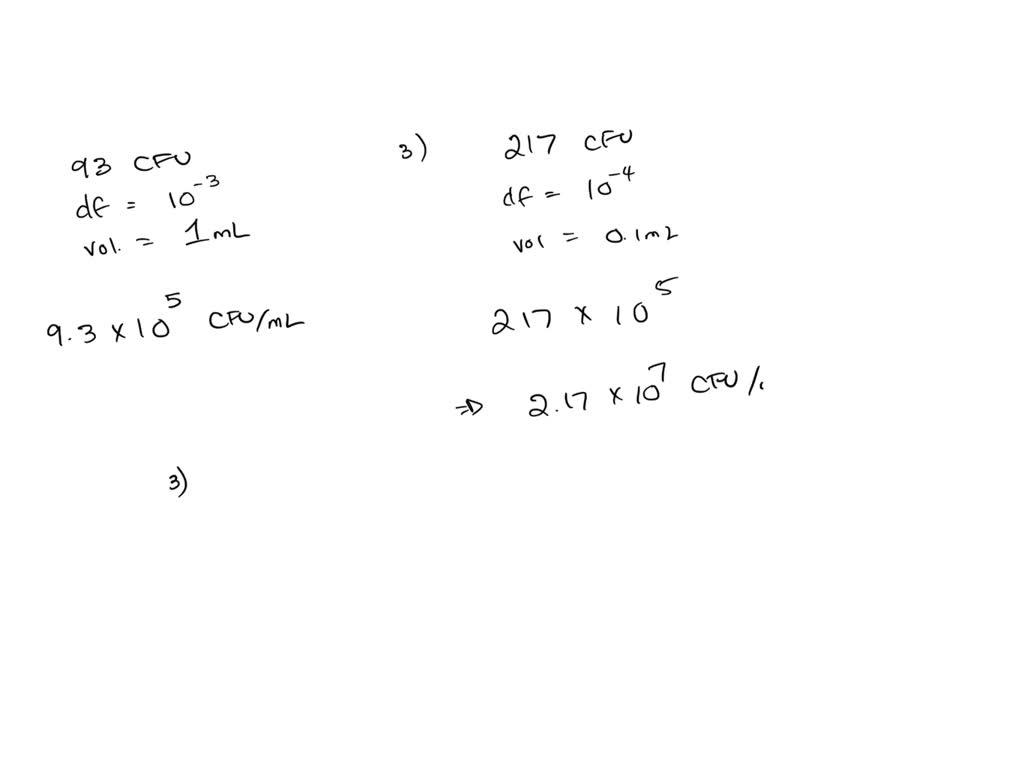 93 CFU
df = 10⁻³
vol. = 1mL
9.3 x 10⁵ CFU/mL
3) 217 CFU
df = 10⁻⁴
vol = 0.1mL
217 x 10⁵
⇒ 2.17 x 10⁷ CFU/.
3)